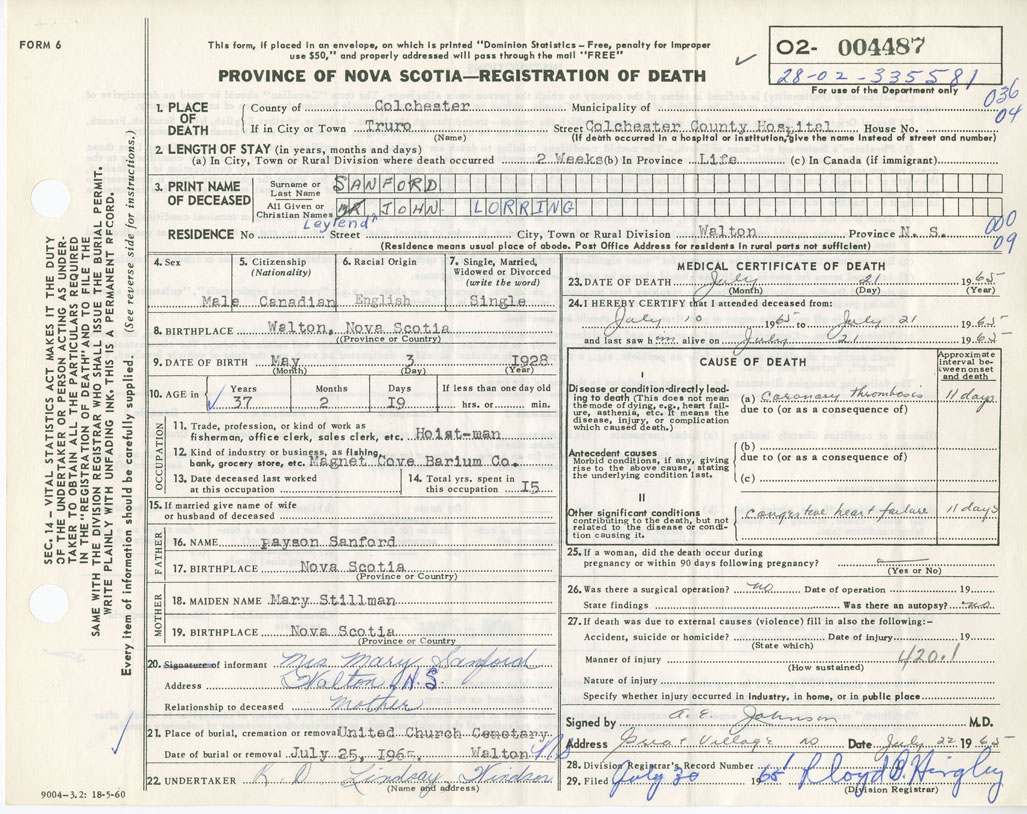 FORM 6
This form, if placed in an envelope, on which is printed "Dominion Statistics – Free, penalty for improper
use $50," and properly addressed will pass through the mail "FREE"
PROVINCE OF NOVA SCOTIA—REGISTRATION OF DEATH
O2- 004487
28-02-335581
For use of the Department only
036
04
1. PLACE OF DEATH
County of Colchester Municipality of
If in City or Town Truro Street Colchester County Hospital House No.
(Name) (If death occurred in a hospital or institution, give name instead of street and number)
2. LENGTH OF STAY (in years, months and days)
(a) In City, Town or Rural Division where death occurred 2 Weeks (b) In Province Life (c) In Canada (if immigrant)
3. PRINT NAME OF DECEASED
Surname or Last Name SANFORD
All Given or Christian Names MR JOHN LORRING
Leylend
000
09
RESIDENCE No Street City, Town or Rural Division Walton Province N. S.
(Residence means usual place of abode. Post Office Address for residents in rural parts not sufficient)
4. Sex
Male
5. Citizenship (Nationality)
Canadian
6. Racial Origin
English
7. Single, Married, Widowed or Divorced (write the word)
Single
8. BIRTHPLACE Walton, Nova Scotia
(Province or Country)
9. DATE OF BIRTH May 3 1928
(Month) (Day) (Year)
10. AGE in
Years Months Days If less than one day old
37 2 I9 hrs. or min.
OCCUPATION
11. Trade, profession, or kind of work as
fisherman, office clerk, sales clerk, etc. Hoist-man
12. Kind of industry or business, as fishing,
bank, grocery store, etc. Magnet Cove Barium Co.
13. Date deceased last worked
at this occupation
14. Total yrs. spent in
this occupation I5
15. If married give name of wife
or husband of deceased
FATHER
16. NAME payson Sanford
17. BIRTHPLACE Nova Scotia
(Province or Country)
MOTHER
18. MAIDEN NAME Mary Stillman
19. BIRTHPLACE Nova Scotia
(Province or Country)
20. Signature of informant Mrs Mary Sanford
Address Walton, N.S.
Relationship to deceased mother
21. Place of burial, cremation or removal United Church Cemetary
Date of burial or removal July 25, 1965 Walton N.S
22. UNDERTAKER Lindsay Windsor
(Name and address)
MEDICAL CERTIFICATE OF DEATH
23. DATE OF DEATH July 21 1965
(Month) (Day) (Year)
24. I HEREBY CERTIFY that I attended deceased from:
July 10 1965 to July 21 1965
and last saw h alive on July 21 1965
CAUSE OF DEATH
Approximate interval between onset and death
I
Disease or condition directly leading to death (This does not mean the mode of dying, e.g., heart failure, asthenia, etc. It means the disease, injury, or complication which caused death.)
(a) Coronary thrombosis 11 days
due to (or as a consequence of)
Antecedent causes
Morbid conditions, if any, giving rise to the above cause, stating the underlying condition last.
(b)
due to (or as a consequence of)
(c)
II
Other significant conditions
contributing to the death, but not related to the disease or condition causing it.
Congestive heart failure 11 days
25. If a woman, did the death occur during
pregnancy or within 90 days following pregnancy?
(Yes or No)
26. Was there a surgical operation? no Date of operation 19
State findings Was there an autopsy? no
27. If death was due to external causes (violence) fill in also the following:–
Accident, suicide or homicide? Date of injury 19
(State which)
Manner of injury 420.1
(How sustained)
Nature of injury
Specify whether injury occurred in industry, in home, or in public place
Signed by A. E. Johnson M.D.
Address Great Village NS Date July 22 1965
28. Division Registrar's Record Number
29. Filed July 30 1965 Lloyd B. Hingley
(Division Registrar)
SEC. 14 – VITAL STATISTICS ACT MAKES IT THE DUTY
OF THE UNDERTAKER OR PERSON ACTING AS UNDER-
TAKER TO OBTAIN ALL THE PARTICULARS REQUIRED
IN THE "REGISTRATION OF DEATH" AND TO FILE THE
SAME WITH THE DIVISION REGISTRAR WHO SHALL ISSUE THE BURIAL PERMIT.
WRITE PLAINLY WITH UNFADING INK. THIS IS A PERMANENT RECORD.
Every item of information should be carefully supplied. (See reverse side for instructions.)
9004–3.2: 18-5-60